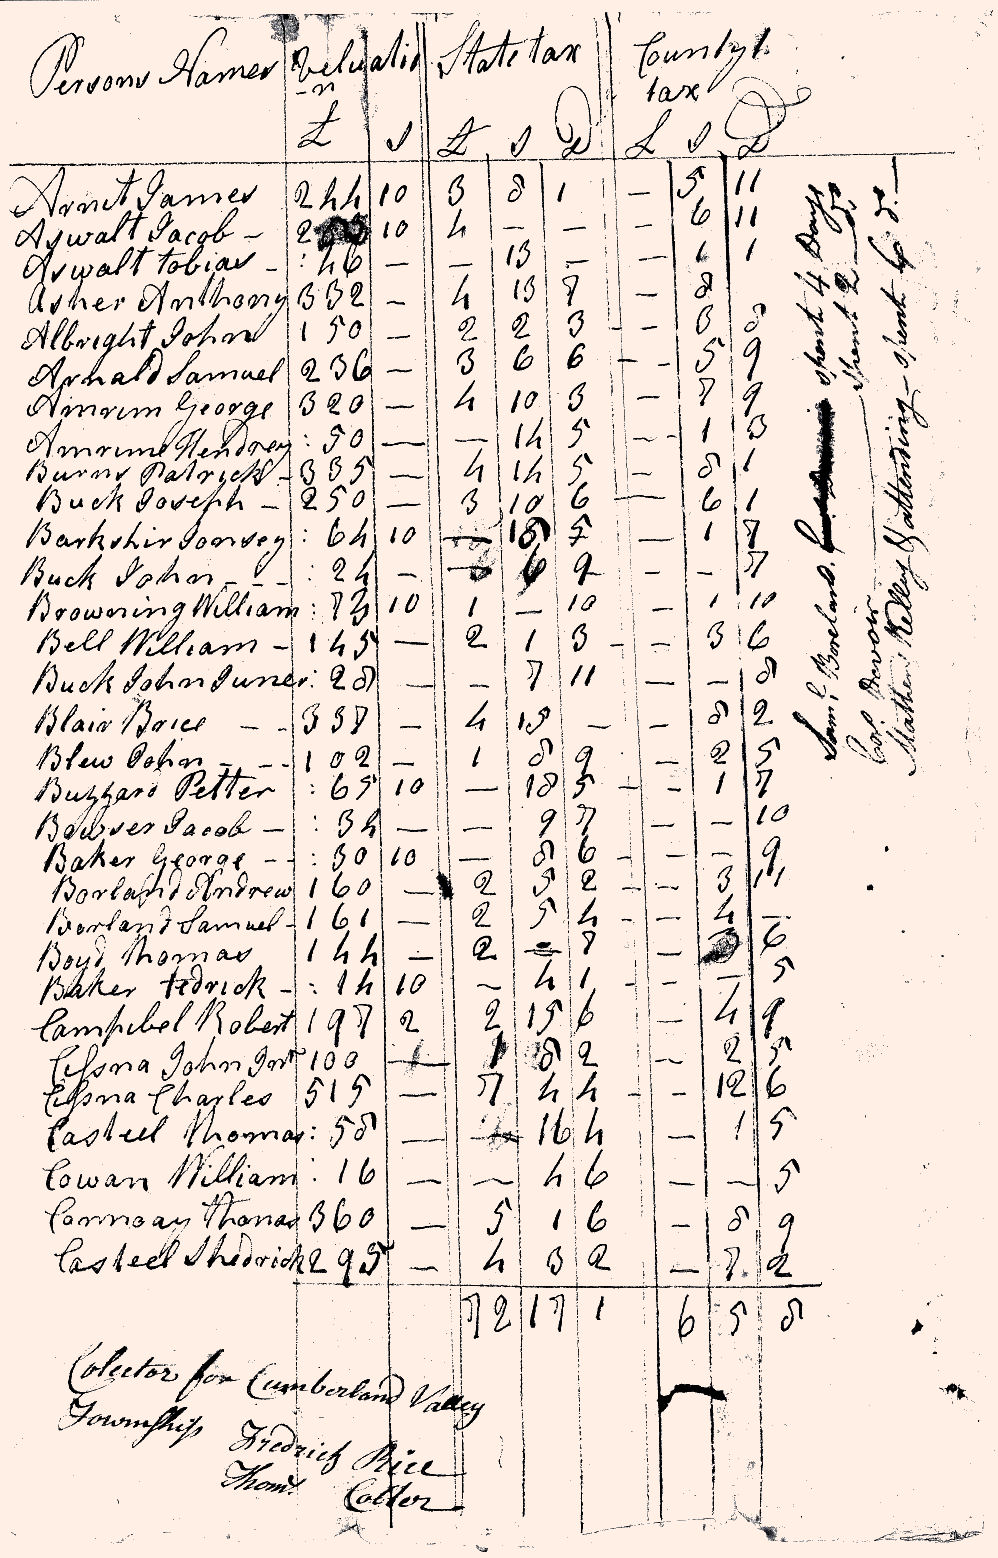 Persons Names Valuatio State tax County
-n tax
£ S £ S D £ S D
Arnit James 244 10 3 8 1 - 5 11
Aswalt Jacob - 10 4 - - - 6 11
Aswalt tobias - : 46 - - 13 - - 1 1
Asher Anthony 332 - 4 13 7 - 8
Albright John 150 - 2 2 3 - - 3 8
Arnald Samuel 236 - 3 6 6 - 5 9
Amrim George 320 - 4 10 3 - 7 9
Amrime Hendrey : 50 - - 14 5 - - 1 3
Burns Patrick - 335 - 4 14 5 - 8 1
Buck Joseph - 250 - 3 10 6 - 6 1
Barkshir Jomsey : 64 10 - 18 5 - 1 7
Buck John - - - : 24 - - 6 9 - - 7
Browning William : 73 10 1 - 10 - 1 10
Bell William - 145 - 2 1 3 - - 3 6
Buck John Juner : 28 - - 7 11 - - 8
Blair Brice - - 337 - 4 15 - - 8 2
Blew John - - - 102 - 1 8 9 - 2 5
Buzzard Petter : 65 10 - 18 5 - - 1 7
Bowser Jacob - : 34 - - 9 7 - - 10
Baker George - - : 30 10 - 8 6 - - - 9
Borland Andrew 160 - 2 5 2 - - 3 11
Borland Samuel - 161 - 2 5 4 - - 4 -
Boyd Thomas 144 - 2 - 7 6
Baker fedrick - : 14 10 - 4 1 - - 5
Campibel Robert 197 2 2 15 6 - 4 9
Cessna John Jnr 100 - 1 8 2 - 2 5
Cessna Charles 515 - 7 4 4 - - 12 6
Casteel Thomas : 58 - - 16 4 - 1 5
Cowan William : 16 - - 4 6 - - 5
Connoay Thomas 360 - 5 1 6 - 8 9
Casteel Shedrick 295 - 4 3 2 - 7 2
72 17 1 6 5 8
Colector for Cumberland Valley
Township
Fredrick Rice
Thom.s Colter
Sam.l Boreland. spent 4 Days
Cor Devoir - spent 2 - ds
Mathew Kelly attending - spent 6 d. -